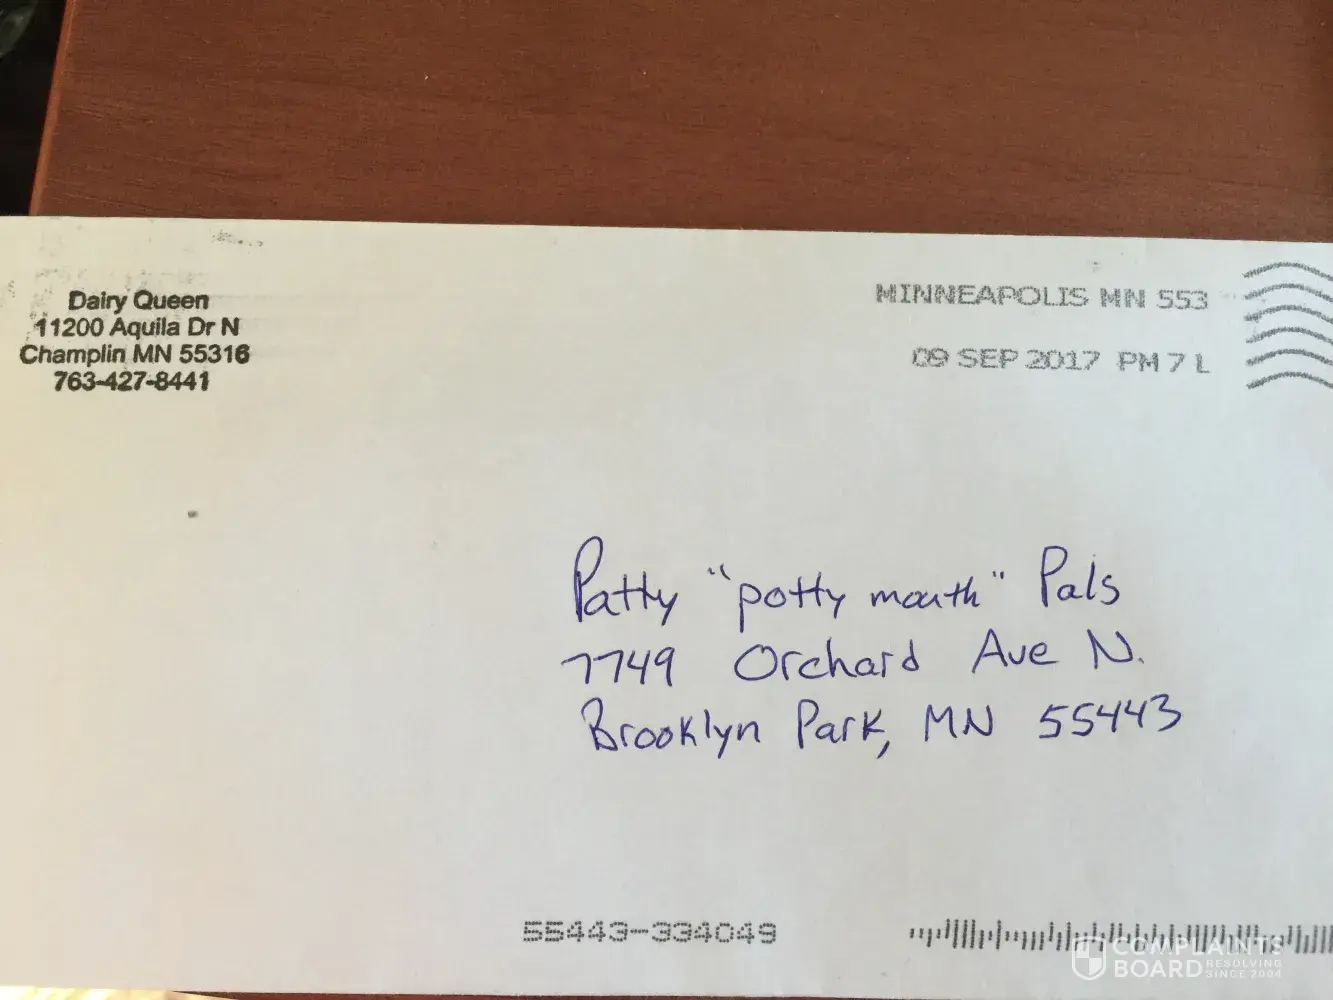 Dairy Queen
11200 Aquila Dr N
Champlin MN 55316
763-427-8441
MINNEAPOLIS MN 553
09 SEP 2017 PM 7 L
Patty "potty mouth" Pals
7749 Orchard Ave N.
Brooklyn Park, MN 55443
55443-334049
COMPLAINTS
BOARD RESOLVING
SINCE 2004